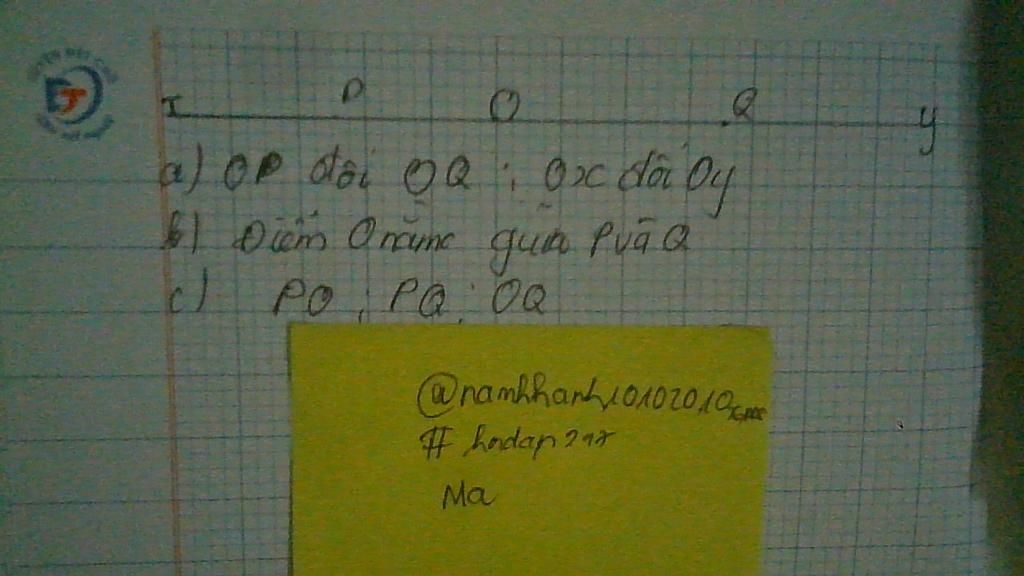 x P O Q y
a) OP đối OQ ; Ox đối Oy
b) Điểm O nằm giữa P và Q
c) PO ; PQ ; OQ
@namhhanh10102010
# hodap247
Ma